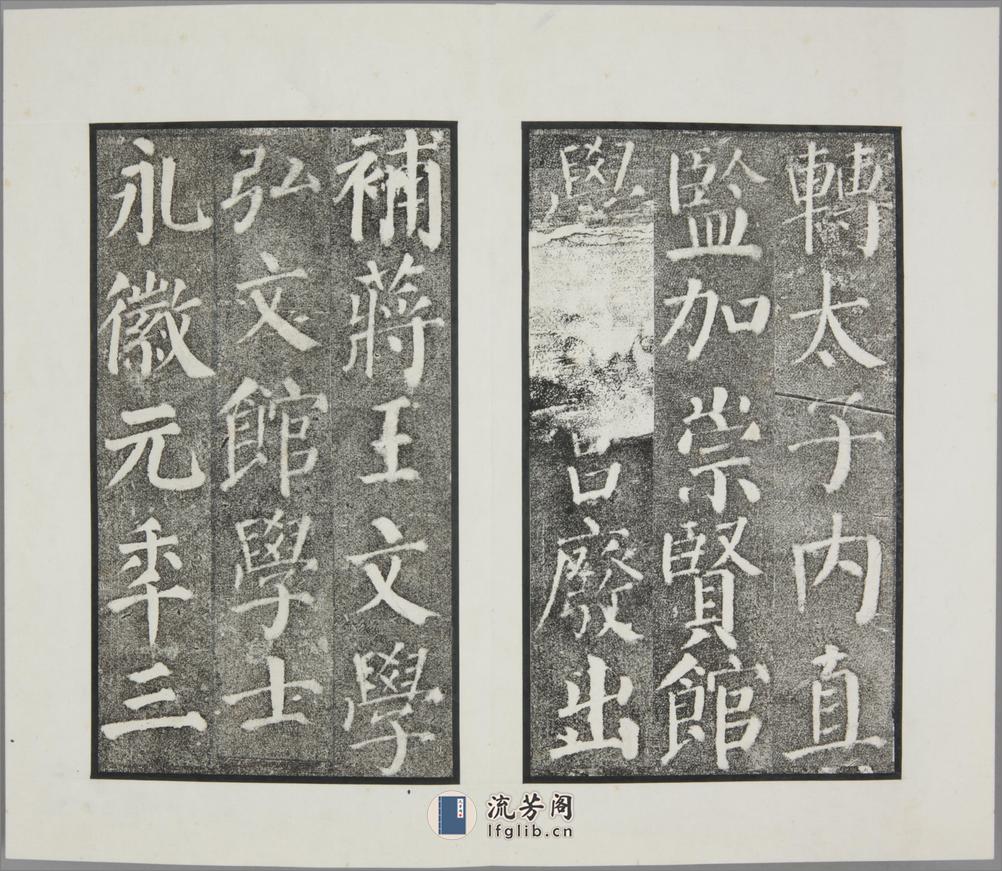 轉太子内直
監加崇賢館
學廢出
補蔣王文學
弘文館學士
永徽元年三
流芳阁
lfglib.cn